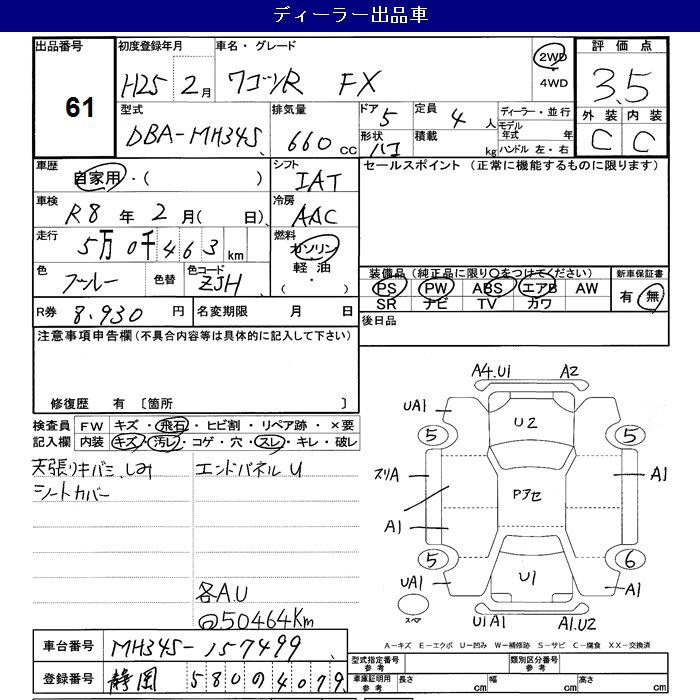 ディーラー出品車
出品番号 61
初度登録年月 H25 2月
車名・グレード ワゴンR FX
2WD 4WD
評価点 3.5
外装 C 内装 C
型式 DBA-MH34S
排気量 660 cc
ドア 5 形状 ハコ
定員 4 人 積載 kg
ディーラー・並行
モデル年式 年
ハンドル 左・右
車歴 自家用・( )
シフト IAT
セールスポイント (正常に機能するものに限ります)
車検 R8 年 2 月( 日)
冷房 AAC
走行 5万 0千 4 6 3 km
燃料 ガソリン 軽油 ・( )
色 ブルー 色替 色コード ZJH
装備品(純正品に限り○をつけてください) 新車保証書
PS PW ABS エアB AW 有・無
SR ナビ TV カワ
R券 8,930 円 名変期限 月 日
後日品
注意事項申告欄(不具合内容等は具体的に記入して下さい)
修復歴 有 〔箇所 〕
検査員 FW キズ・飛石・ヒビ割・リペア跡・×要
記入欄 内装 キズ・汚レ・コゲ・穴・スレ・キレ・破レ
天張りキバミ、しみ
シートカバー
エンドパネルU
各A.U
@50464Km
A4.U1 A2
UA1 U2
5 5
スリA A1
Pアセ
A1
5 6
UA1 U1 A1
スペア U1A1 A1.U2
A-キズ E-エクボ U-凹み W-補修跡 S-サビ C-腐食 XX-交換済
車台番号 MH34S-157499
登録番号 静岡 580 の 4079
型式指定番号 参考 類別区分番号 参考
車庫証明用 参考 長さ cm 幅 cm 高さ cm